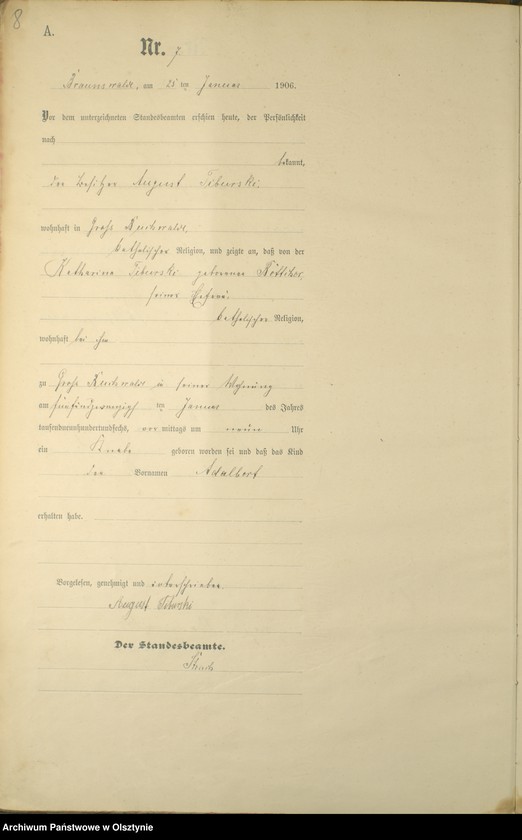 8
A.
Nr. 7
Braunswalde, am 25 ten Januar 1906.
Vor dem unterzeichneten Standesbeamten erschien heute, der Persönlichkeit
nach
bekannt,
der Besitzer August Tiburski,
wohnhaft in Groß Buchwalde,
katholischer Religion, und zeigte an, daß von der
Katharina Tiburski geborenen Böttcher,
seiner Ehefrau
katholischer Religion,
wohnhaft bei ihm
zu Groß Buchwalde in seiner Wohnung
am fünfundzwanzigsten ten Januar des Jahres
tausendneunhundertundsechs, vor mittags um neun Uhr
ein Knabe geboren worden sei und daß das Kind
den Vornamen Adalbert
erhalten habe.
Vorgelesen, genehmigt und unterschrieben
August Tiburski
Der Standesbeamte.
Archiwum Państwowe w Olsztynie